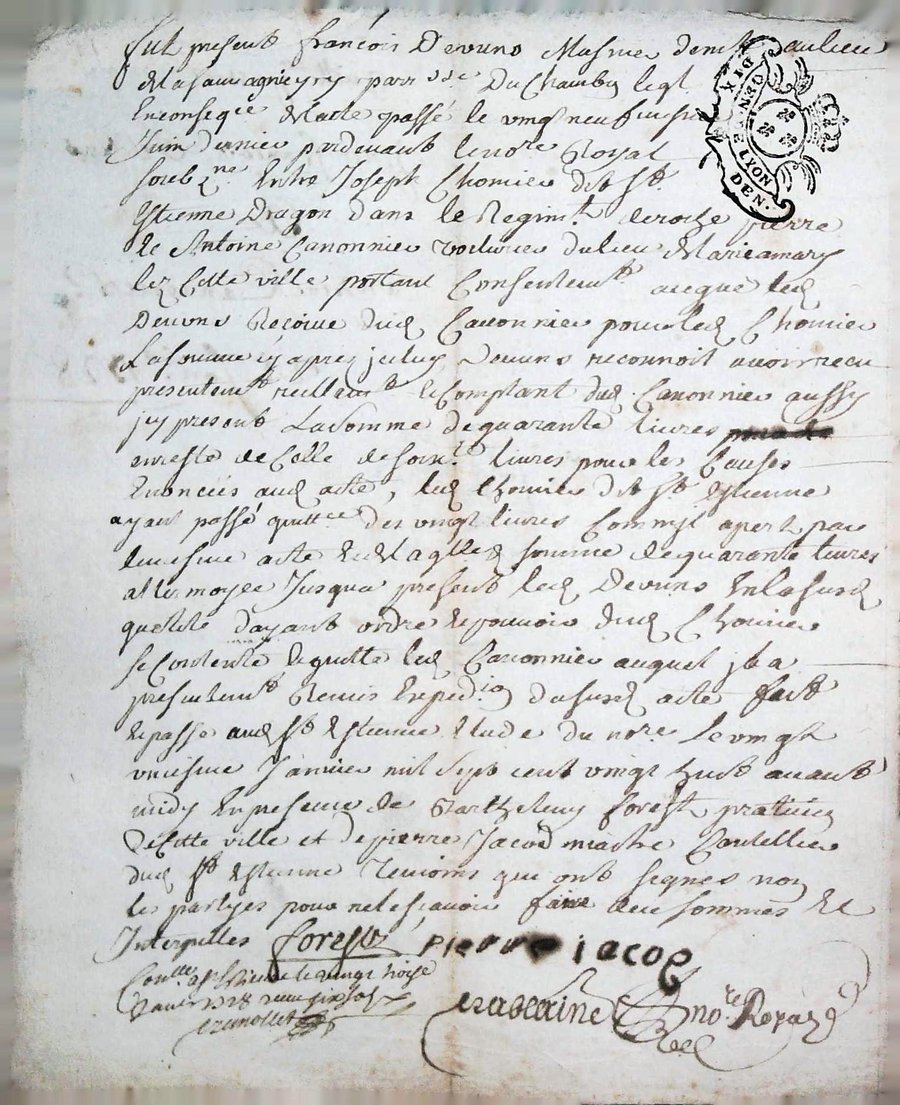 fut present françois Devuns Musnier dem.t au lieu
de la sauvagnieyry parr.sse Du Chambon lequel
En conseq.ce de lacte passé le vingt neufviesme
Juin dernier pardevant le no.re Royal
soub.né Entre Joseph Chomier dit S.t
Estienne Dragon dans le Regim.t
Et Antoine Canonnier voiturier du lieu de
lez Cette ville portant Consentem.t a ce que led
Devuns Recoive dud Canonnier pour led Chomier
La somme cy apres jceluy Devuns reconnoit avoir receu
presentem.t reellem.t & Comptant dud Canonnier aussy
jcy present La somme de quarante livres
en reste de Celle de soix.te livres pour les Causes
Enoncées aud acte, led Chomier dit S.t Estienne
ayant passé quitt.ce des vingt livres Comm'jl apert par
le mesme acte Et de laq.lle somme de quarante livres
jusqua present led Devuns En la susd
quallité dayant ordre & pouvoir dud Chomier
se Contente & quitte led Canonnier auquel jl a
presentem.t Remis Expedi.on du susd acte fait
& passé aud S.t Estienne Etude du no.re Le vingt
uniesme Janvier mil sept cent vingt huit avant
midy En presence de Barthelemy forest praticien
de Cette ville et de pierre Jacod maistre Coutellier
dud S.t Estienne Temoins qui ont signes non
les partyes pour ne le scavoir faire de ce sommés Et
Interpellés forest pierre jacod
Con.llé a S.t Estienne le vingt troise
Janvier 1728 Receu six sols
no.re Royal
DIX
GEN.NE LYON
DEN.